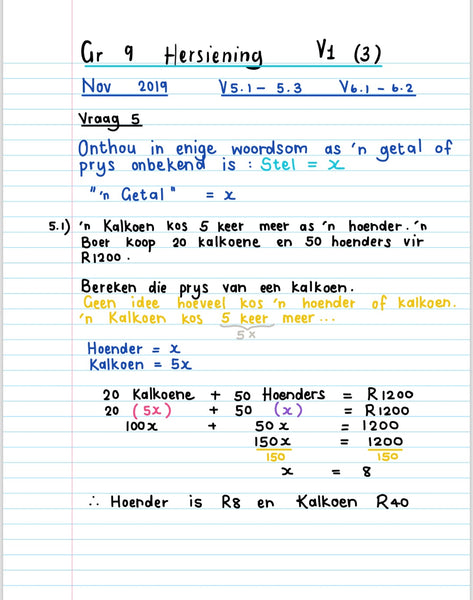 Gr 9 Hersiening V1 (3)
Nov 2019 V5.1 - 5.3 V6.1 - 6.2
Vraag 5
Onthou in enige woordsom as 'n getal of
prys onbekend is : Stel = x
"'n Getal" = x
5.1) 'n Kalkoen kos 5 keer meer as 'n hoender. 'n
Boer koop 20 kalkoene en 50 hoenders vir
R1200.
Bereken die prys van een kalkoen.
Geen idee hoeveel kos 'n hoender of kalkoen.
'n Kalkoen kos 5 keer meer...
5x
Hoender = x
Kalkoen = 5x
20 Kalkoene + 50 Hoenders = R1200
20 (5x) + 50 (x) = R1200
100x + 50x = 1200
150x = 1200
150 150
x = 8
∴ Hoender is R8 en Kalkoen R40